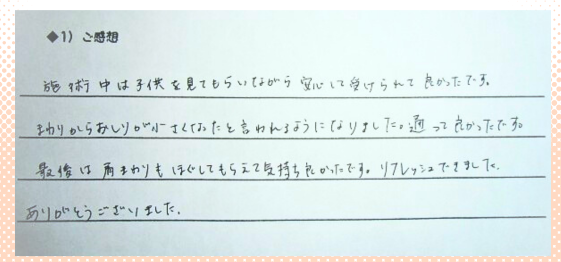 ◆1) ご感想
施術中は子供を見てもらいながら安心して受けられて良かったです。
まわりからおしりが小さくなったと言われるようになりました。通って良かったです。
最後は肩まわりもほぐしてもらえて気持ち良かったです。リフレッシュできました。
ありがとうございました。